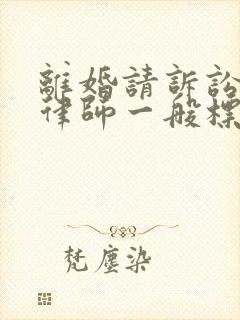 離婚請訴訟
律師一般標
梵塵染